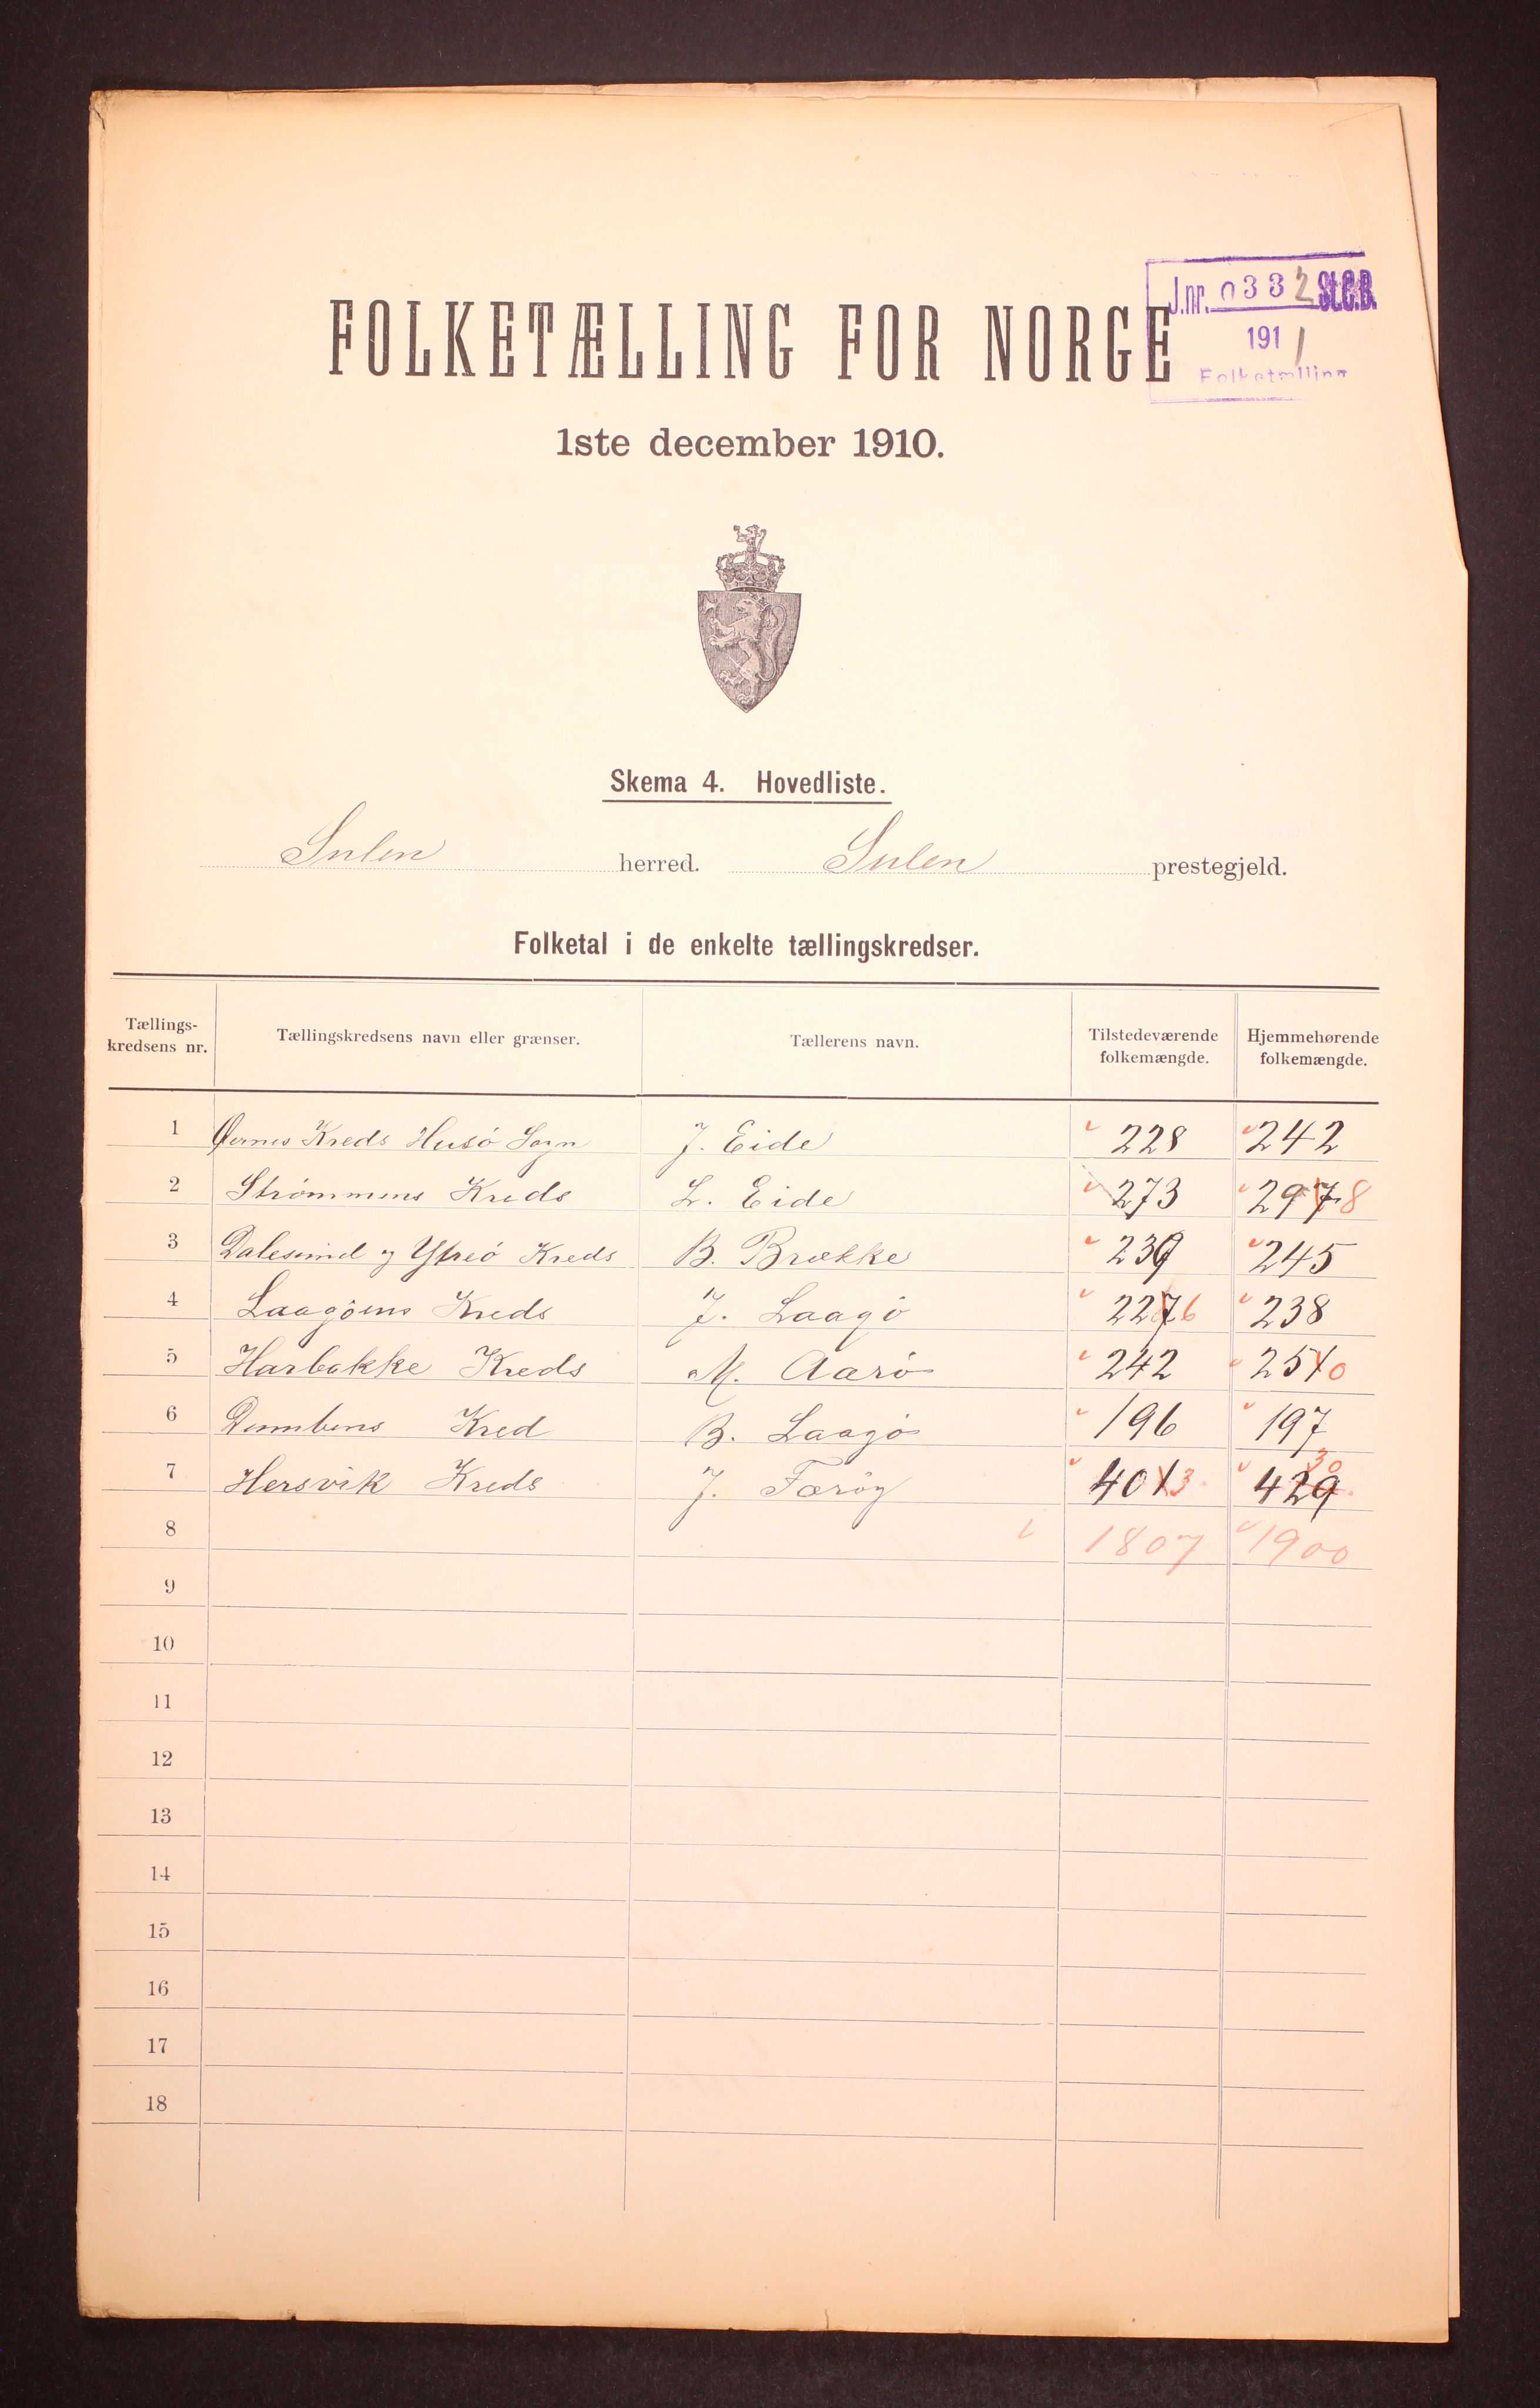 J.nr. 0332 St.C.B.
1911
Folketælling
FOLKETÆLLING FOR NORGE
1ste december 1910.
Skema 4. Hovedliste.
Sulen herred. Sulen prestegjeld.
Folketal i de enkelte tællingskredser.
Tællings-kredsens nr. Tællingskredsens navn eller grænser. Tællerens navn. Tilstedeværende folkemængde. Hjemmehørende folkemængde.
1 Kreds Husø Sogn J. Eide 228 242
2 Strømmens Kreds L. Eide 273 297 8
3 Dalesund og Ytreö Kreds B. Brække 239 245
4 Laagöens Kreds J. Laagö 227 6 238
5 Harbakke Kreds M. Aarö 242 251 0
6 Kred B. Laagö 196 197
7 Hersvik Kreds J. Færöy 401 3 429 30
8 1807 1900
9
10
11
12
13
14
15
16
17
18